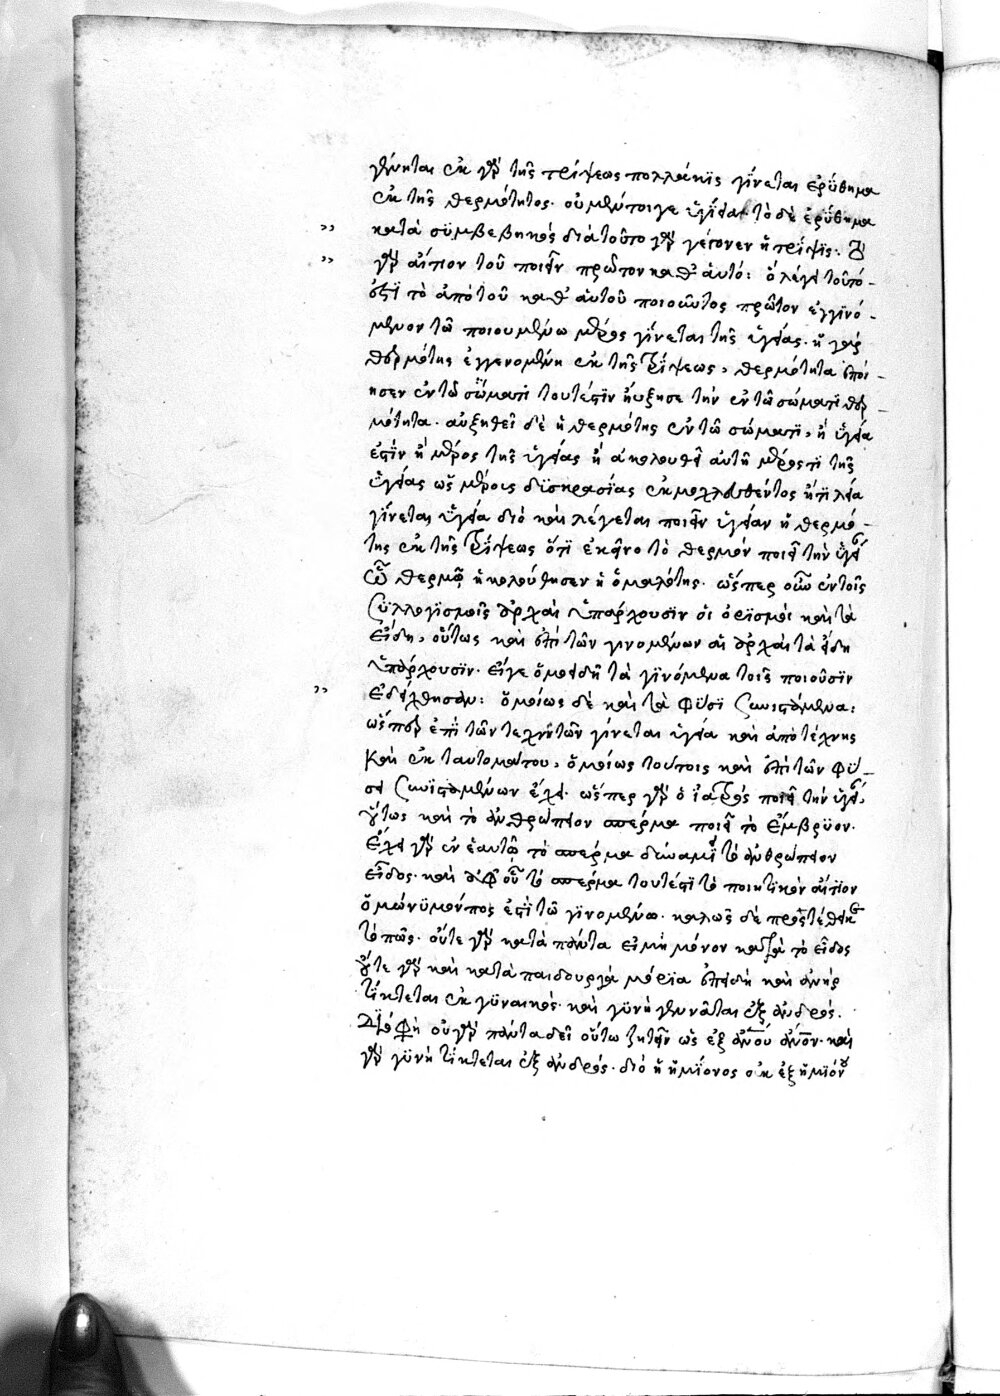 γίνηται ἐκ γὰρ τῆς τρίψεως πολλάκις γίνεται ἐρύθημα
ἐκ τῆς θερμότητος. οὐ μέντοιγε ὑγίεια. τὸ δὲ ἐρύθημα
κατὰ συμβεβηκὸς διὰ τοῦτο γὰρ γέγονεν ἡ τρίψις.
γὰρ αἴτιον τοῦ ποιεῖν πρῶτον καθ' αὑτό: ὃ λέγει τοῦτό-
ἐστι τὸ ἀπὸ τοῦ καθ' αὑτοῦ ποιοῦντος πρῶτον ἐγγινό-
μενον τῶ ποιουμένω μέρος γίνεται τῆς ὑγείας. ἡ γὰρ
θερμότης ἐγγενομένη ἐκ τῆς τρίψεως, θερμότητα ἐποί-
ησεν ἐν τῶ σώματι τουτέστιν ηὔξησε τὴν ἐν τῶ σώματι θερ-
μότητα. αὐξηθεῖ δὲ ἡ θερμότης ἐν τῶ σώματι, ἢ ὑγεία
ἐστὶν ἢ μέρος τῆς ὑγείας ἢ ἀκολουθεῖ αὐτῆ μέρος τι τῆς
ὑγείας ὡς μέροις δυσκρασίας ἐκμοχλευθέντος ἥτις λεία
γίνεται ὑγεία διὸ καὶ λέγεται ποιεῖν ὑγείαν ἡ θερμό-
της ἐκ τῆς τρίψεως ὅτι ἐκεῖνο τὸ θερμὸν ποιεῖ τὴν ὑγεί
ὧ θερμῶ ἠκολούθησεν ἡ ὁμαλότης. ὥσπερ οὖν ἐν τοῖς
συλλογισμοῖς ἀρχαὶ ὑπάρχουσιν οἱ ὁρισμοὶ καὶ τὰ
εἴδη, οὕτως καὶ ἐπὶ τῶν γινομένων αἱ ἀρχαὶ τὰ εἴδη
ὑπάρχουσιν. εἴγε ὁμοειδῆ τὰ γινόμενα τοῖς ποιοῦσιν
ἐδείχθησαν: ὁμοίως δὲ καὶ τὰ φύσι συνιστάμενα:
ὥσπερ ἐπὶ τῶν τεχνητῶν γίνεται ὑγεία καὶ ἀπὸ τέχνης
καὶ ἐκ ταυτομάτου, ὁμοίως τούτοις καὶ ἐπὶ τῶν φύ-
σει συνισταμένων ἔχει. ὥσπερ γὰρ ὁ ἰατρὸς ποιεῖ τὴν ὑγεί,
οὕτως καὶ τὸ ἀνθρώπειον σπέρμα ποιεῖ τὸ ἔμβρυον.
ἔχει γὰρ ἐν ἑαυτῶ τὸ σπέρμα δυνάμει τὸ ἀνθρώπειον
εἶδος. καὶ ἀφ' οὗ τὸ σπέρμα τουτέστι τὸ ποιητικὸν αἴτιον
ὁμώνυμόν πός ἐστι τῶ γινομένω. καλῶς δὲ προστέθειται
τὸ πῶς. οὔτε γὰρ κατὰ πάντα εἰμὴ μόνον κατὰ τὸ εἶδος
οὔτε γὰρ καὶ κατὰ παιδουργὰ μόρια ἐπειδὴ καὶ ἀνὴρ
τίκτεται ἐκ γυναικός. καὶ γυνὴ γεννᾶται ἐξ ἀνδρός.
οὐ γὰρ πάντα δεῖ οὕτω ζητεῖν ὡς ἐξ ἀνου ἀνον. καὶ
γὰρ γυνὴ τίκτεται ἐξ ἀνδρός. διὸ ἡ ἡμίονος οὐκ ἐξ ἡμιόνου